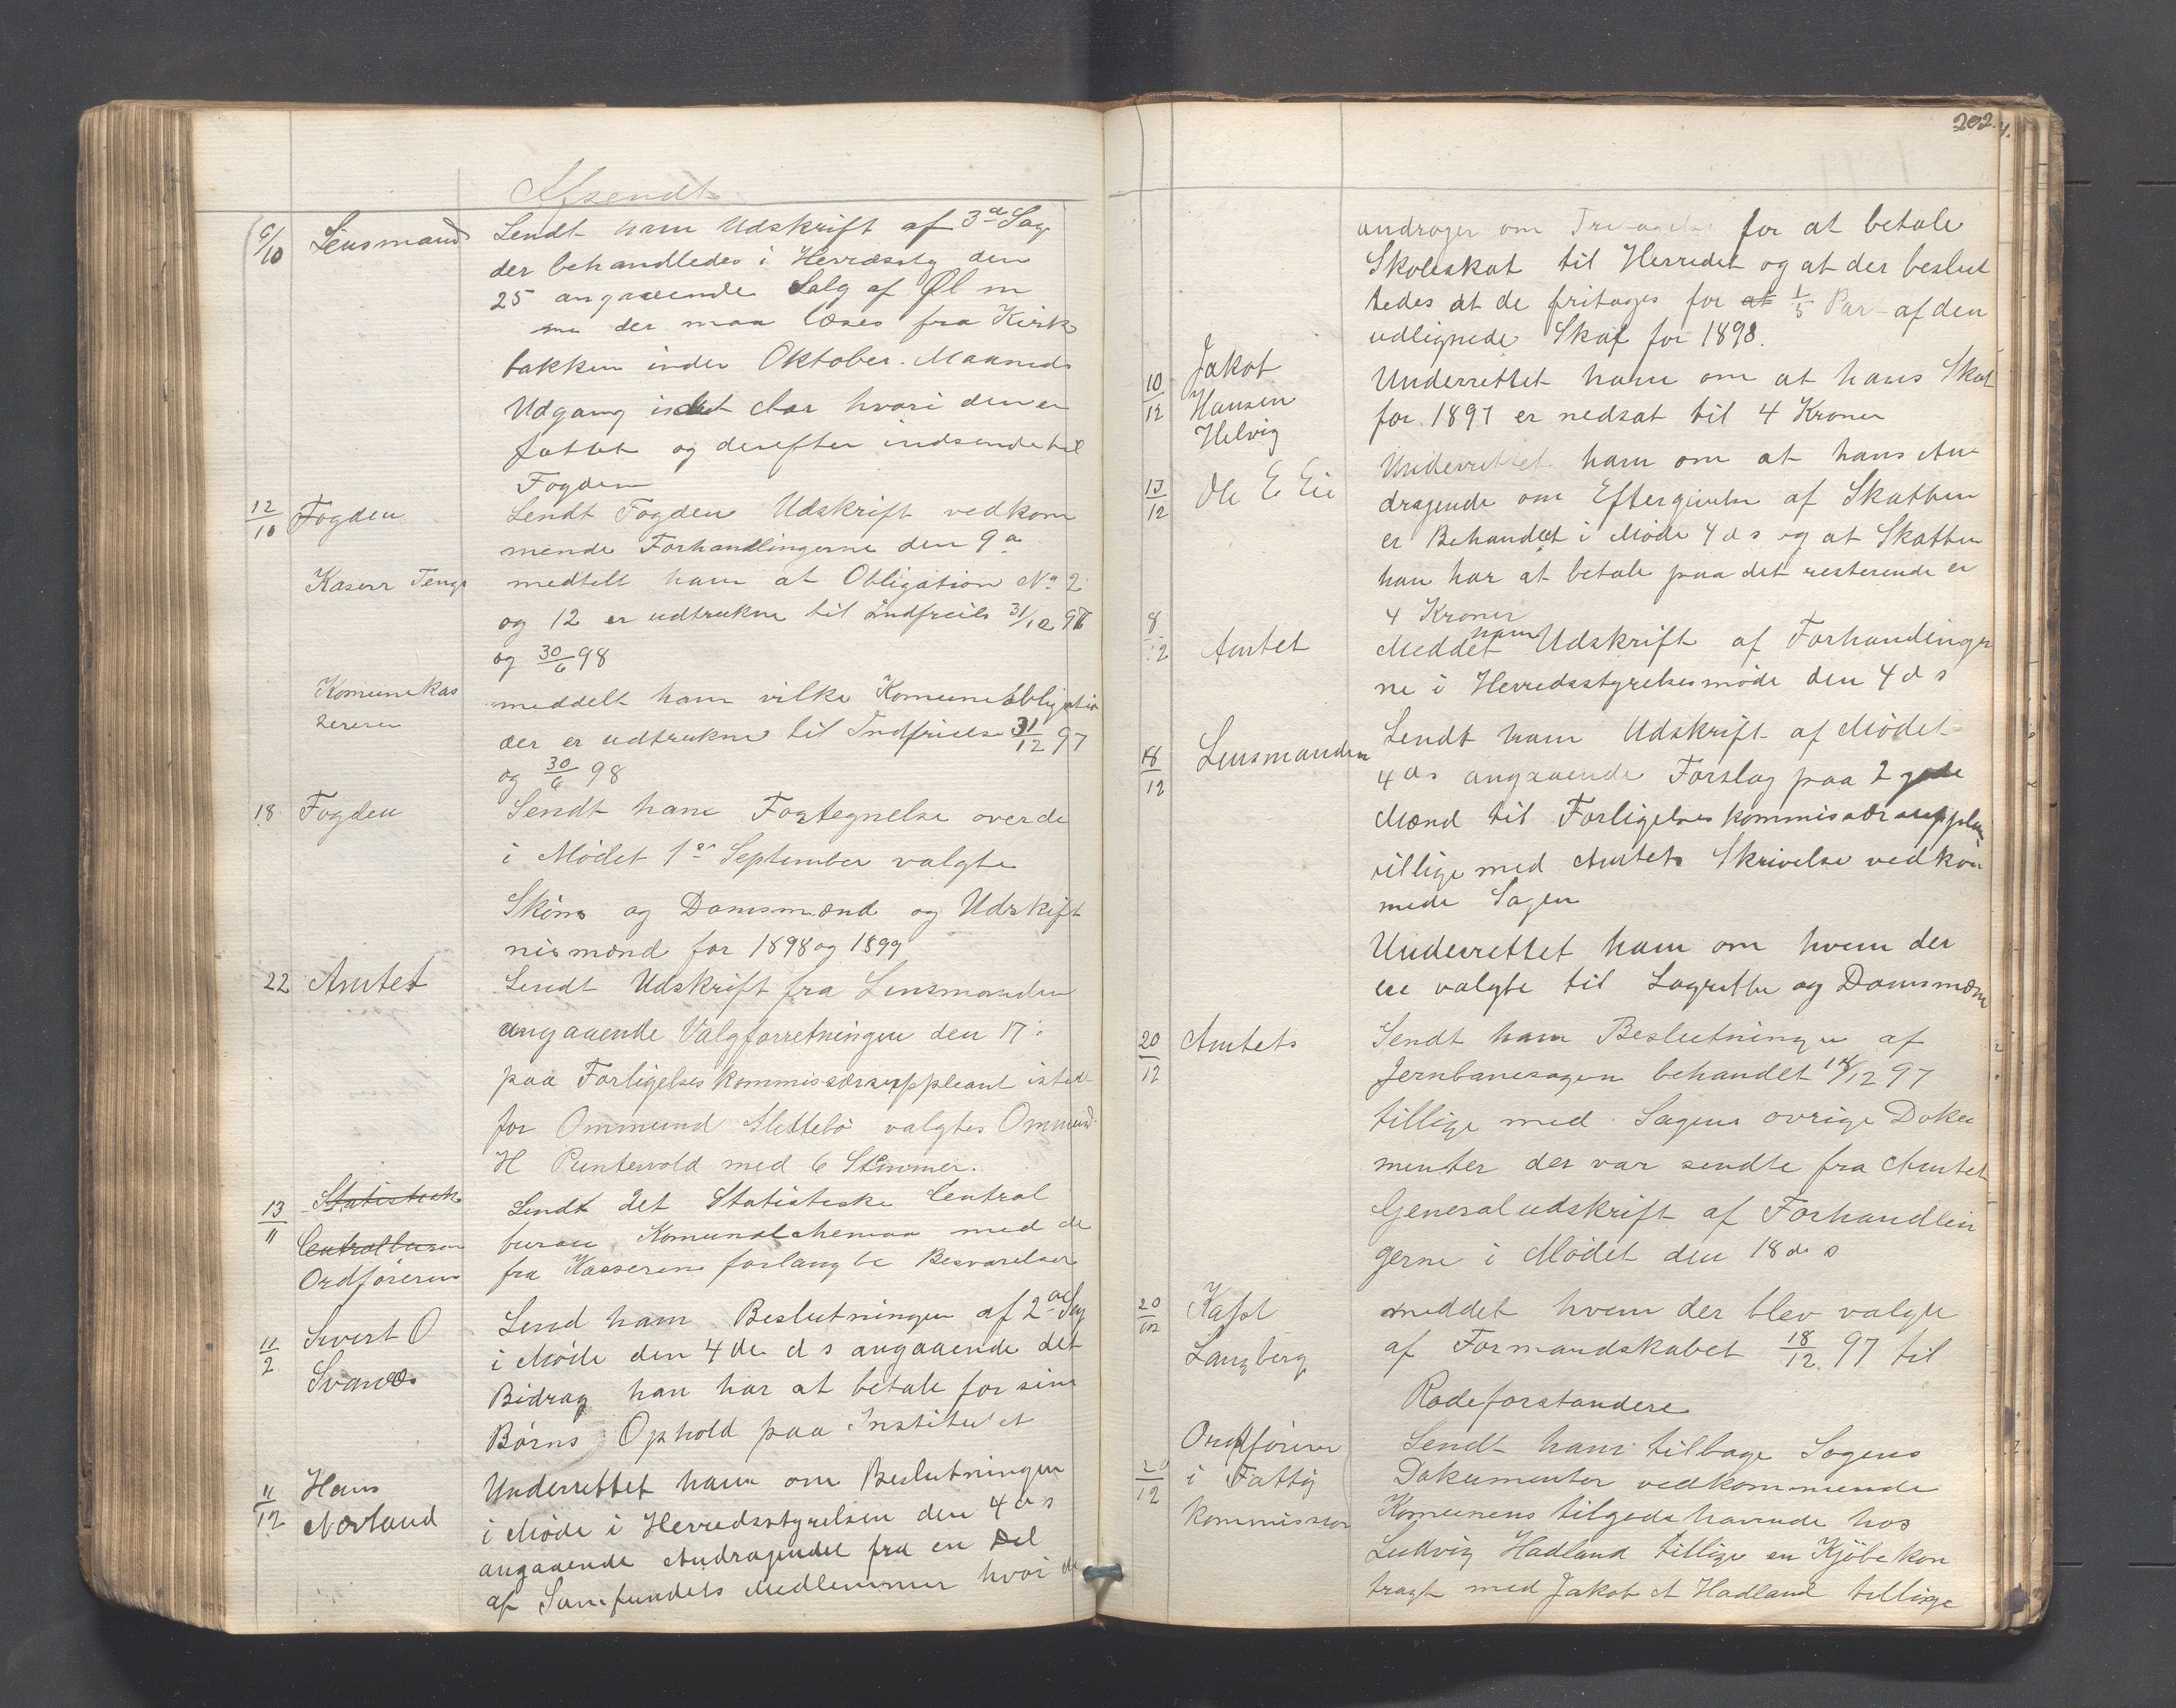 Afsendt
6/10 Lensmand Sendt ham Udskrift af 3die Sag
der behandledes i Herredsstg den
25 angaaende Salg af Øl m
der maa læses fra Kirk
bakken inden Oktober Maaneds
Udgang i det Aar hvori den er
fattet og derefter indsende til
Fogden
12/10 Fogden Sendt Fogden Udskrift vedkom
mende Forhandlingerne den 9de
Kaserr Tengs meddelt ham at Obligation No 2
og 12 er udtrukne til Indfriels 31/12 97
og 30/6 98
Komunekas meddelt ham vilke Komuneobligatio
sereren der er udtrukne til Indfrielse 31/12 97
og 30/6 98
18 Fogden Sendt ham Fortegnelse over de
i Mødet 1ste September valgte
Skjøns og Domsmænd og Udskift
nismænd for 1898 og 1899
22 Amtet Sendt Udskrift fra Lensmanden
angaaende Valgforretningen den 17
paa Forligelseskommissærsuppleant isted
for Ommund Slettebø valgtes Ommund
H Puntervold med 6 Stemmer.
13/11 Statistisk Sendt det Statistiske Central
Centralbureau bureau Komunalskemaa med de
Ordføreren fra Kassereren forlangte Besvarelser
11/2 Sivert O Send ham Beslutningen af 2den Sag
i Møde den 4de d s angaaende det
Svanæs Bidrag han har at betale for sine
Børns Ophold paa Institutet
11/12 Hans Underrettet ham om Beslutningen
Nærland i Møde i Herredsstyrelsen den 4 d s
angaaende Andragendet fra en Del
af Samfundets Medlemmer hvori de
202.
androger om for at betale
Skoleskat til Herredet og at der beslut
tedes at de fritages for at 1/5 Par af den
udlignede Skat for 1898.
10/12 Jakob Underrettet ham om at hans Skat
Hansen for 1897 er nedsat til 4 Kroner
Helvig
13/12 Ole E Eie Underrettet ham om at hans An
dragende om Eftergivelse af Skatten
er Behandlet i Møde 4 d s og at Skatten
han har at betale paa det resterende er
4 Kroner
8/12 Amtet Meddet ham Udskrift af Forhandinger
ne i Herredsstyrelsesmøde den 4 d s
18/12 Lensmanden Sendt ham Udskrift af Mødet
4 ds angaaende Forslag paa 2 gode
Mænd til Forligelseskommisærsupplean
tillige med Amtets Skrivelse vedkom
mede Sagen
Underrettet ham om hvem der
ere valgte til Lagrette og Domsmæn
20/12 Amtets Sendt ham Beslutningen af
Jernbanesagen behandlet 18/12 97
tillige med Sagens øvrige Doku
menter der var sendte fra Amtet
Generaludskrift af Forhandlin
gerne i Mødet den 18 d s
20/12 Kapt meddet hvem der blev valgte
Langberg af Formandskabet 18/12 97 til
Rodeforstandere
Ordfører Sendt ham tilbage Sagens
20/12 i Fattig Dokumenter vedkommende
kommission Komunens tilgodehavende hos
Ludvig Hadland tillige en Kjøbekon
tragt med Jakob A Hadland tillige